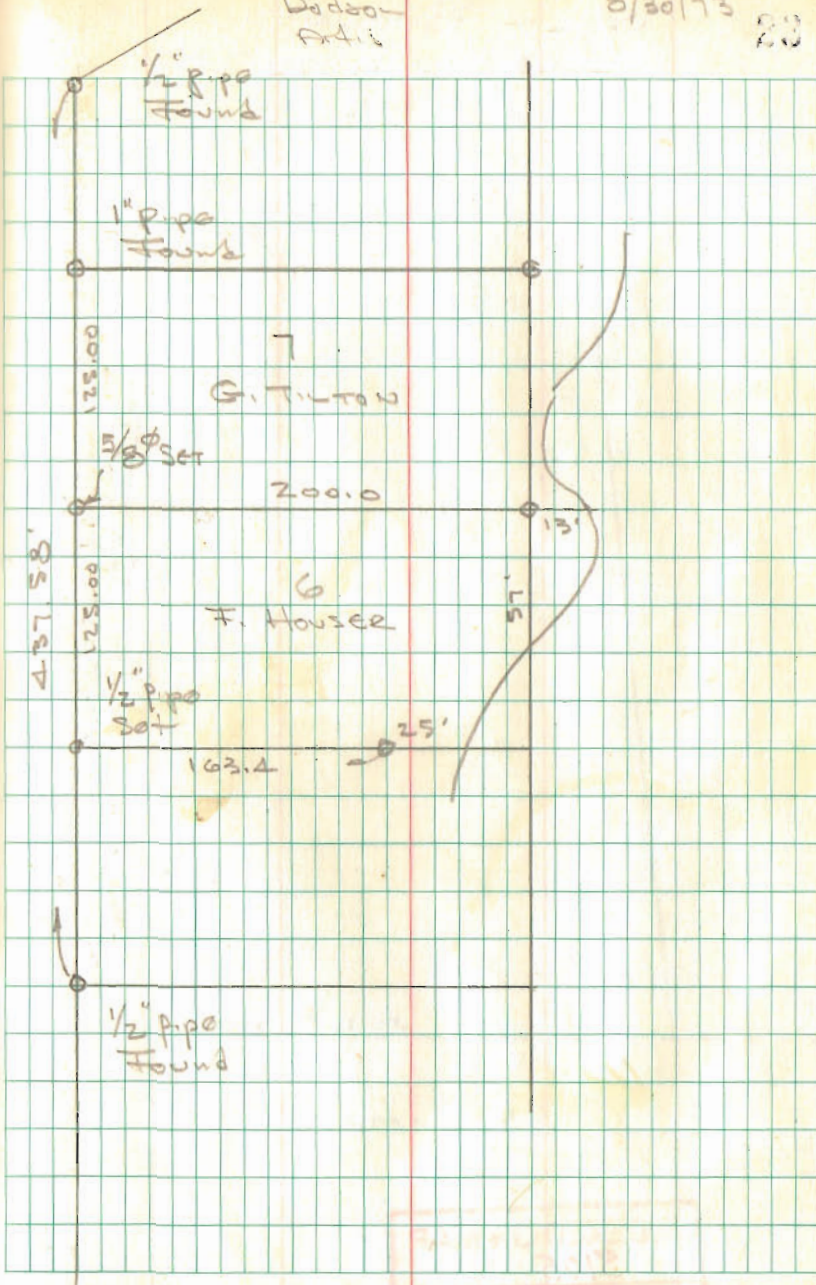 Dodson
8/30/73
23
1/2" pipe
Found
1" pipe
Found
125.00
7
G. TILTON
5/8" φ SET
200.0
13'
437.58'
125.00
6
F. HOUSER
57'
1/2" pipe
Set
25'
163.4
1/2" pipe
Found